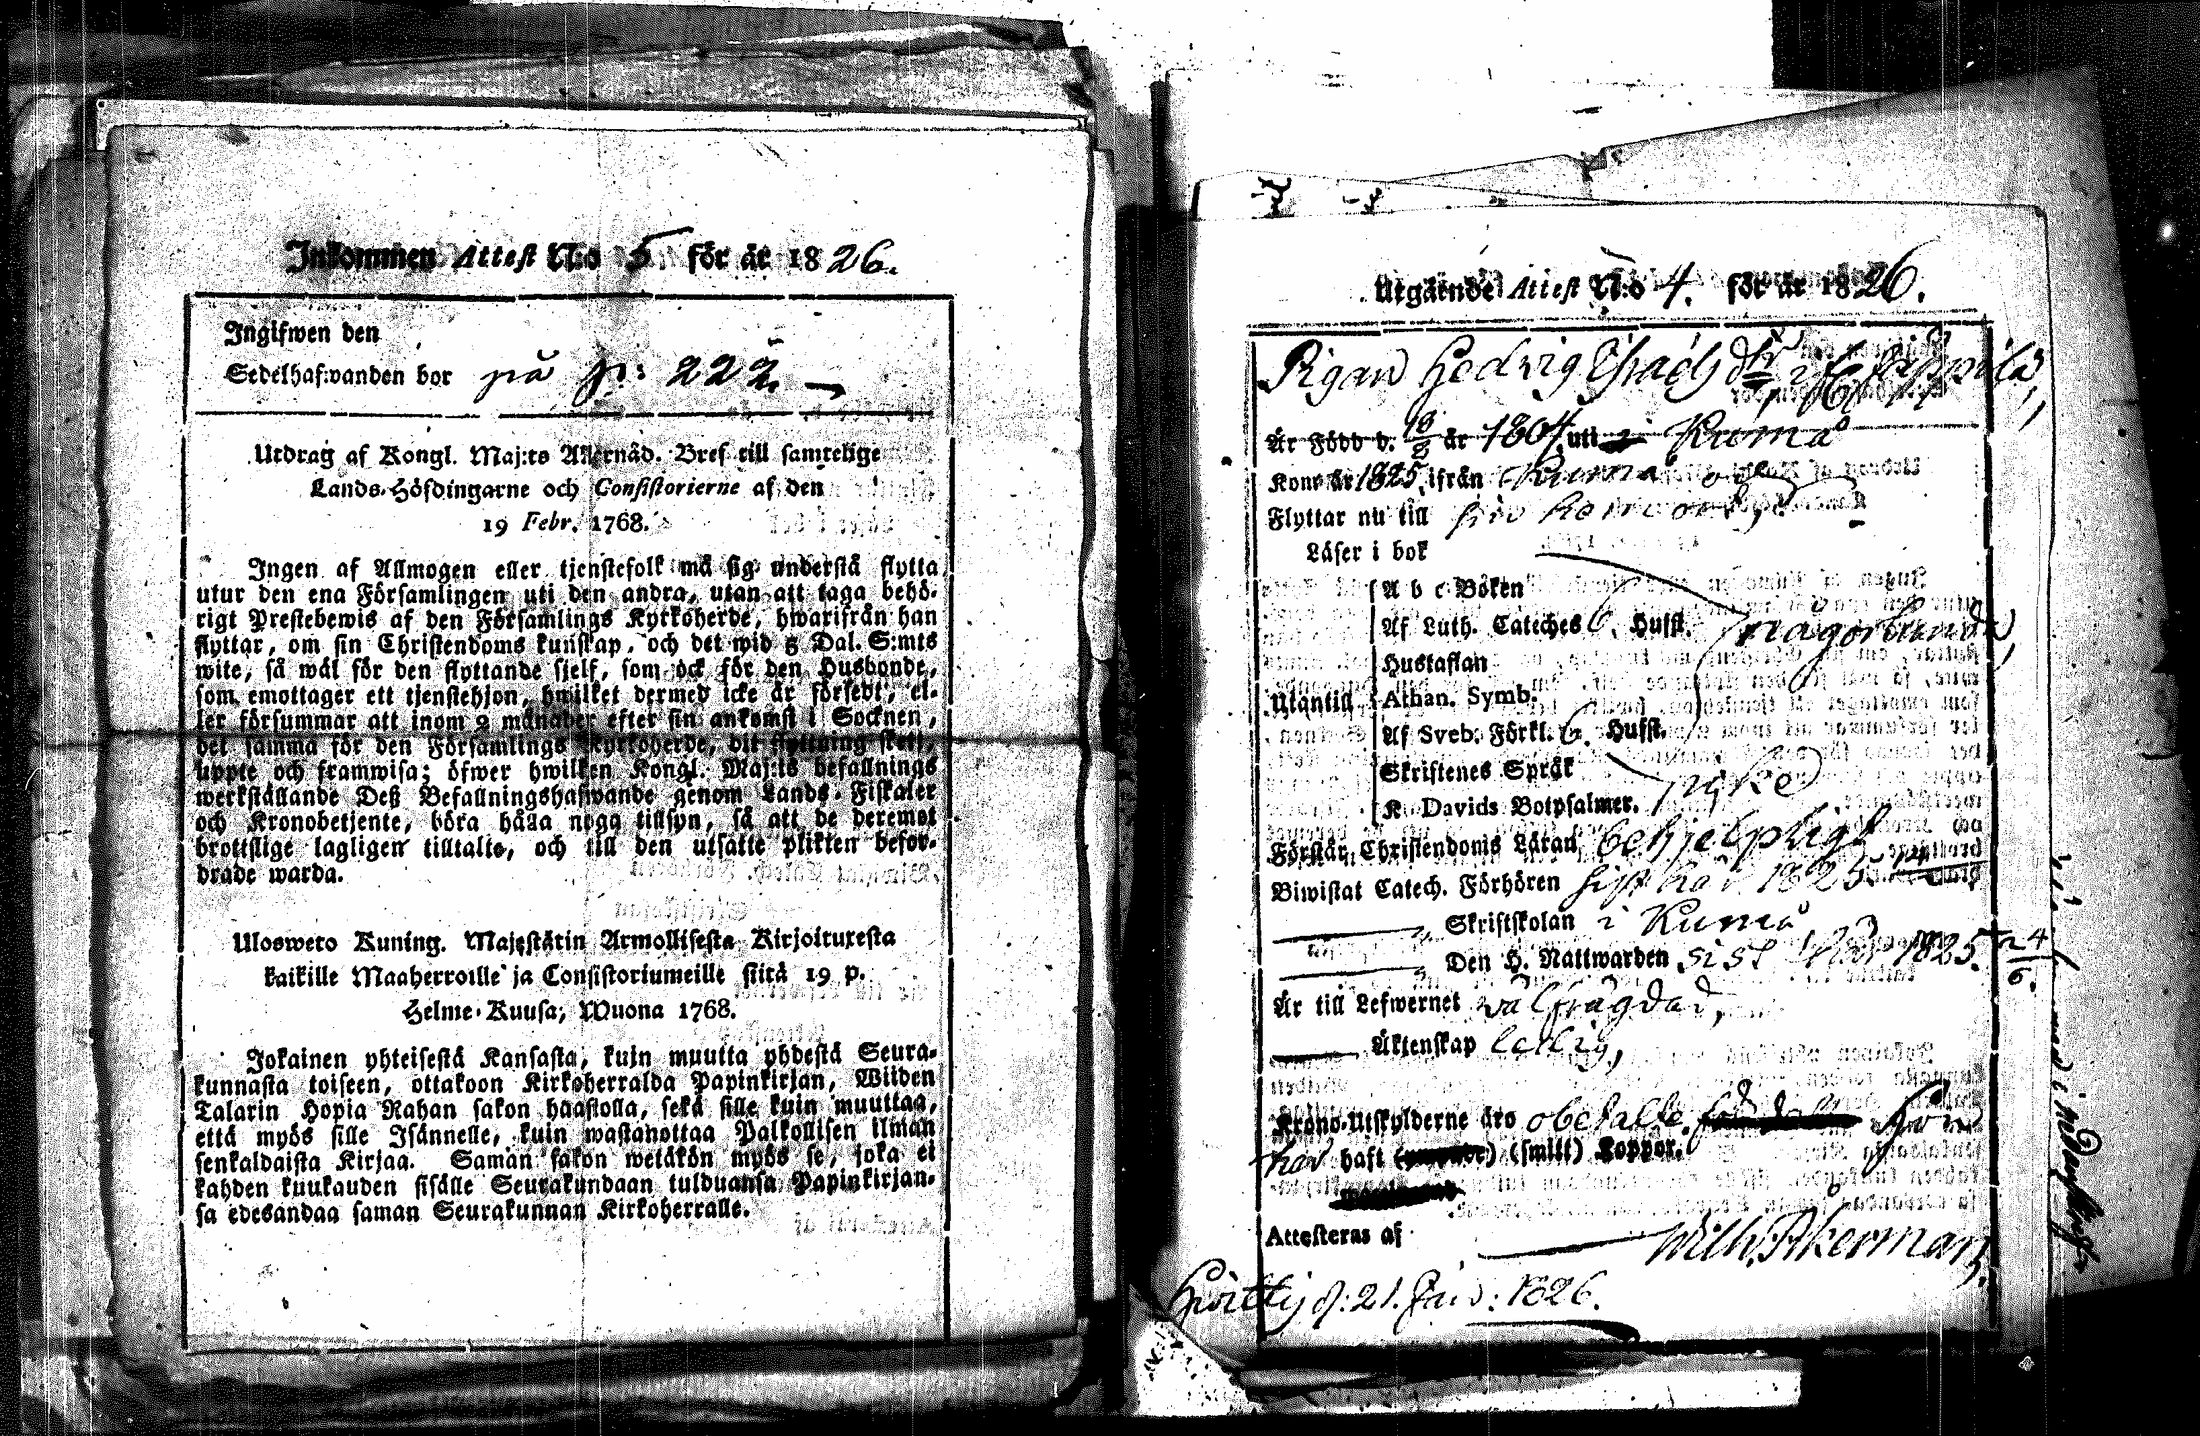 Inkommen Attest N:o 5 för år 1826.
Ingifwen den
Sedelhafwanden bor på p: 222.
Utdrag af Kongl. Maj:ts Allernåd. Bref till samtelige
Lands-Höfdingarne och Consistorierne af den
19 Febr. 1768.
Ingen af Allmogen eller tjenstefolk må sig understå flytta
utur den ena Församlingen uti den andra, utan att taga behö-
rigt Prestebewis af den Församlings Kyrkoherde, hwarifrån han
flyttar, om sin Christendoms kunskap, och det wid 5 Dal. S:mts
wite, så wäl för den flyttande sjelf, som ock för den Husbonde,
som emottager ett tjenstehjon, hwilket dermed icke är försedt, el-
ler försummar att inom 2 månader efter sin ankomst i Socknen,
det samma för den Församlings Kyrkoherde, dit flyttning skett,
uppte och framwisa; öfwer hwilken Kongl. Maj:ts befallnings
werkställande Deß Befallningshafwande genom Lands-Fiskaler
och Kronobetjente, böra hålla noga tillsyn, så att de deremot
brottslige lagligen tilltalte, och till den utsatte plikten befor-
drade warda.
Ulosweto Kuning. Majestätin Armollisesta Kirjoituxesta
kaikille Maaherroille ja Consistoriumeille siitä 19 p.
Helme-Kuusa, Wuona 1768.
Jokainen yhteisestä Kansasta, kuin muutta yhdestä Seura-
kunnasta toiseen, ottakoon Kirkoherralda Papinkirjan, Wiiden
Talarin Hopia Rahan sakon haastolla, sekä sille kuin muuttaa,
että myös sille Isännelle, kuin wastanottaa Palkollisen ilman
senkaldaista Kirjaa. Saman sakon wetäkön myös se, joka ei
kahden kuukauden sisälle Seurakundaan tulduansa Papinkirjan-
sa edesandaa saman Seurakunnan Kirkoherralle.
Utgående Attest N:o 4. för år 1826.
Pigan Hedvig
Är Född d. 18/8 år 1804 uti Kumå
Kom år 1825, ifrån Kumå och
Flyttar nu till sin hemort,
Läser i bok
A b c-Boken
Af Luth. Cateches 6. Hufst. någorlunda,
Hustaflan
Utantill Athan. Symb.
Af Sveb. Förkl. 6. Hufst.
Skriftenes Språk
K. Davids Botpsalmer.
Förstår Christendoms Läran behjelpligt
Biwistat Catech. Förhören sist här 1825
Skriftskolan i Kumå
Den H. Nattwarden sist här 1825 24/6.
Är till Lefwernet wälfrägdad,
Äktenskap ledig,
Krono-Utskylderne äro obetalte. Hon
har haft (smitt) Koppor.
Attesteras af Wilh. Åkerman
d: 21. : 1826.